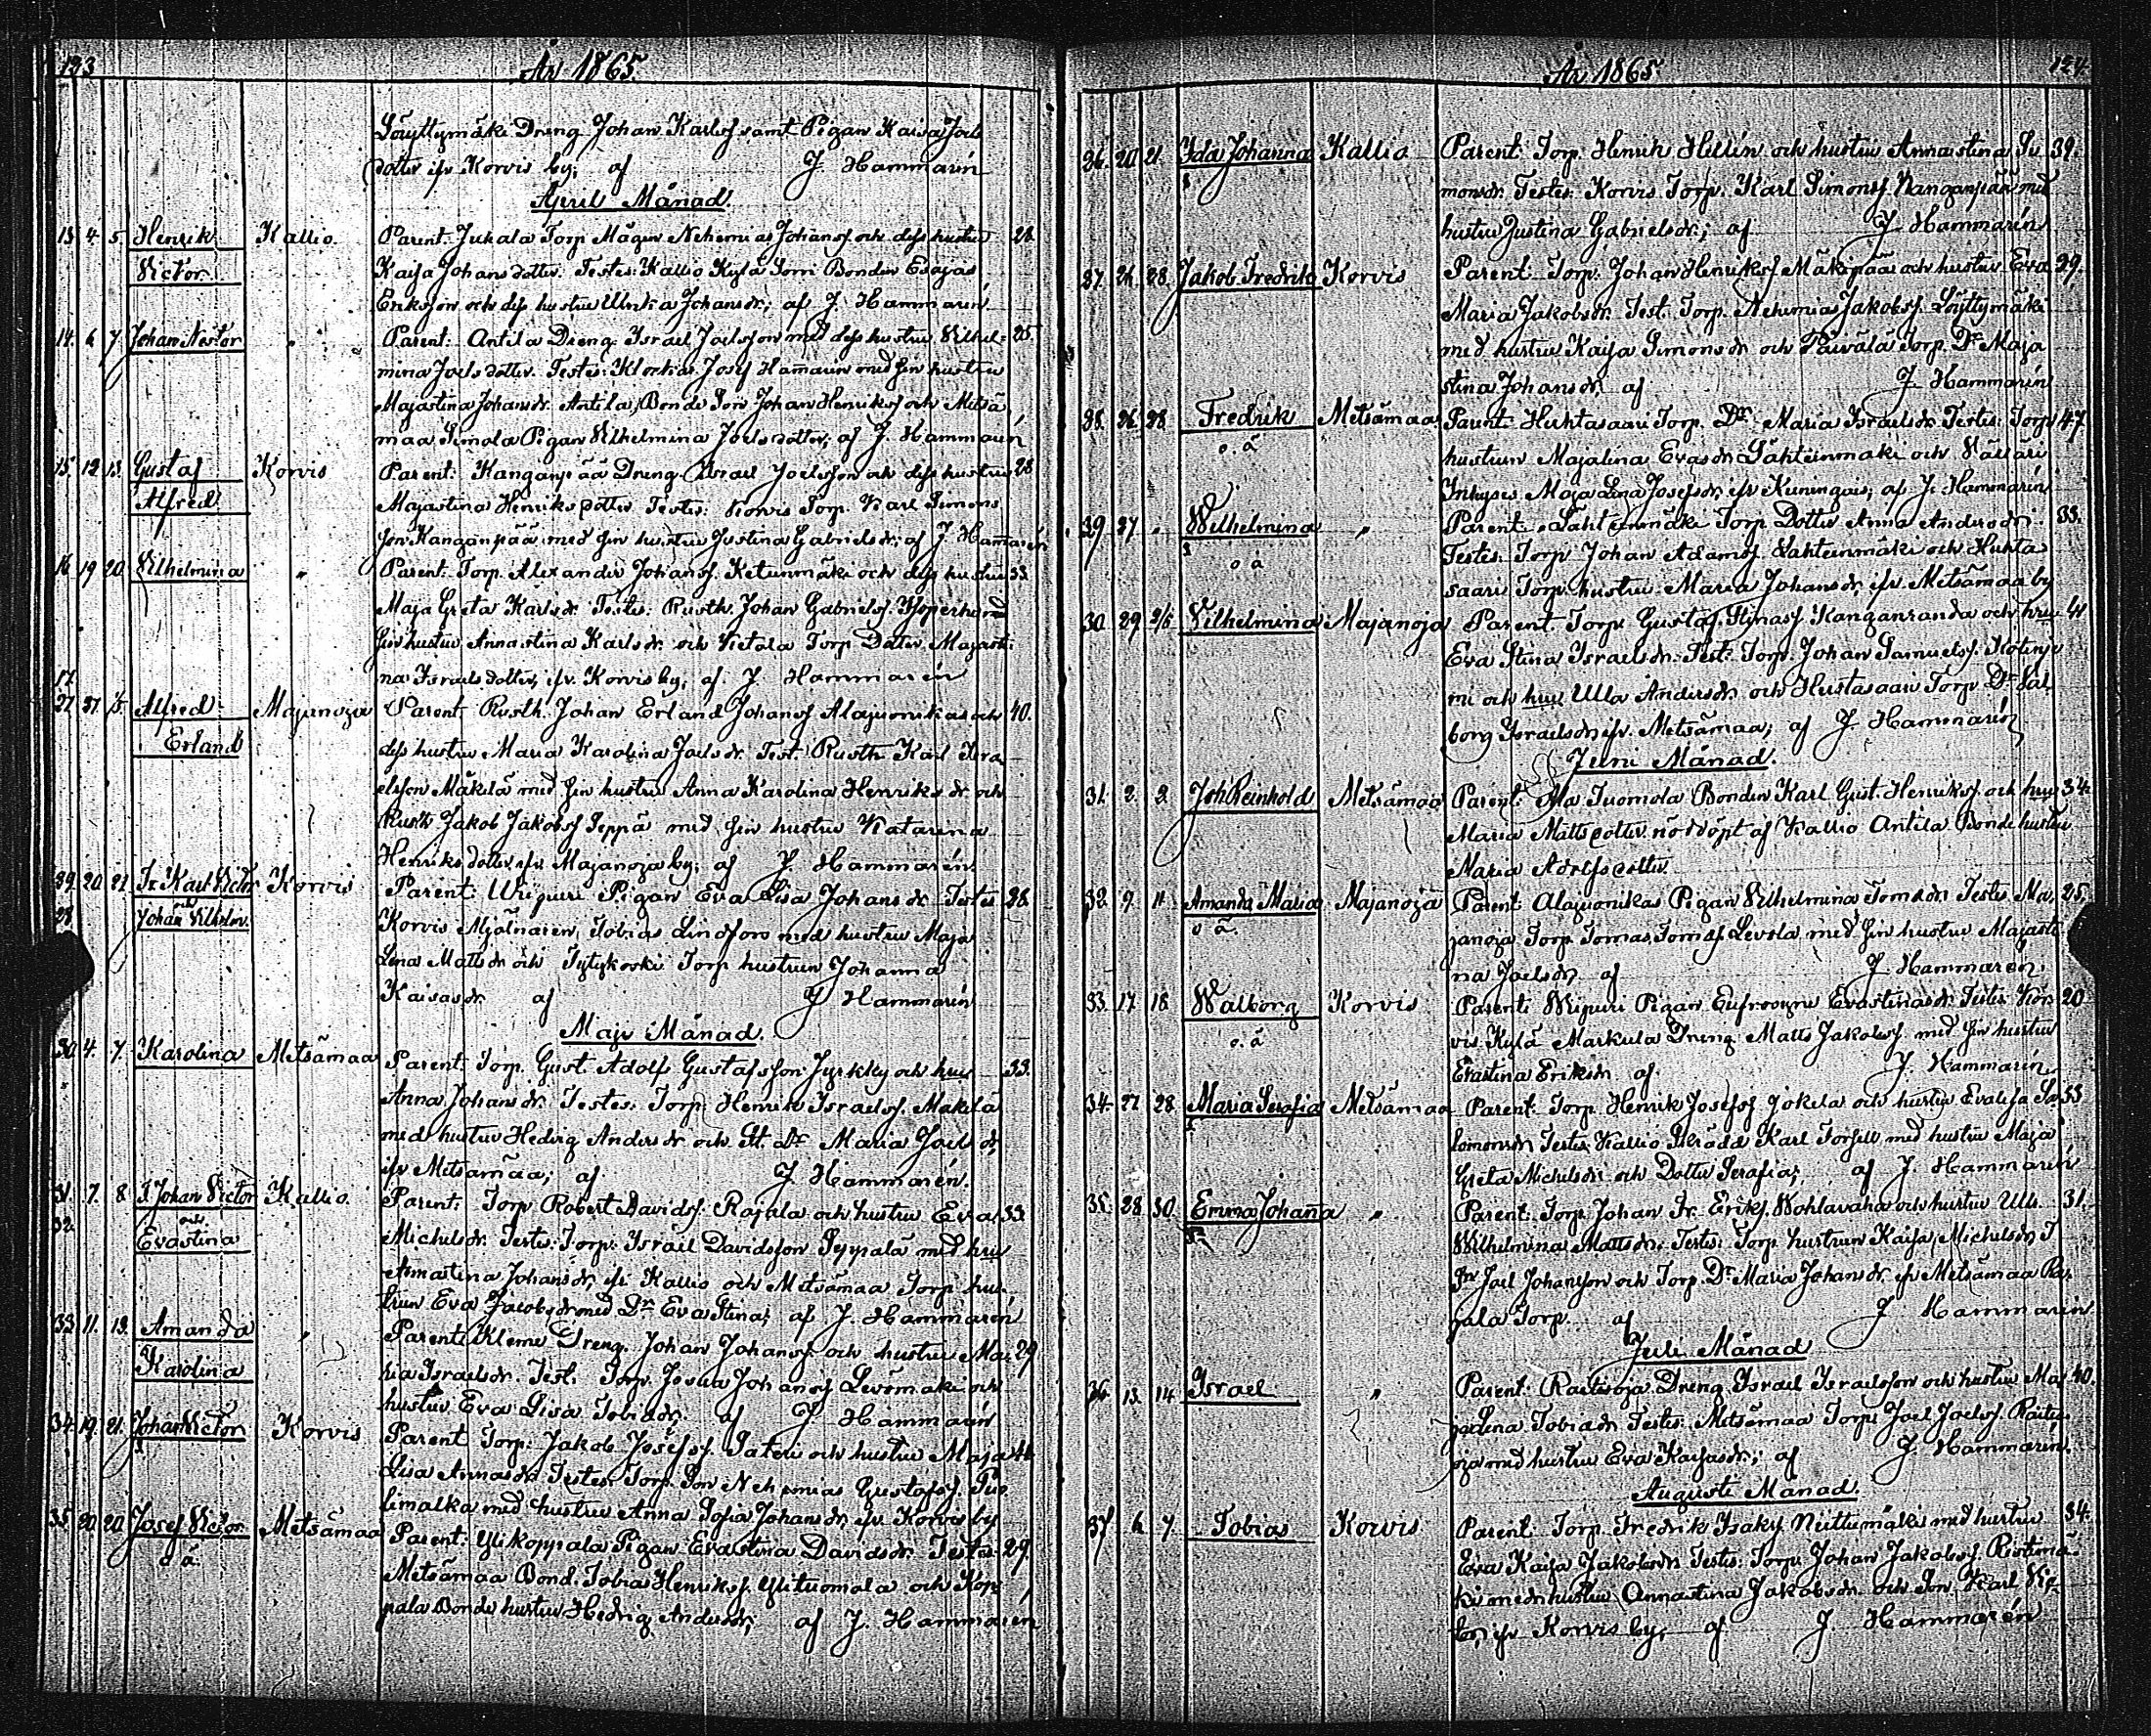 123
År 1865
Löyttymäki Dreng Johan Karlss. samt Pigan Kaisa Joels
dotter ifr Korvis by; af J Hammarén
April Månad.
13. 4. 5. Henrik Kallio. Parent. Torp Mågen Nehemias Johanss. och dess hustru 28
Victor. Kaisa Johansdotter. Testes: Kallio Kylä Bonden Esajas
Eriksson och dess hustru Ulrika Johansdr.; af J. Hammarén.
14. 6 7 Johan Nestor " Parent: Antila Dreng Israel Joelsson med dess hustru Vilhel- 25
mina Joelsdotter. Testes: Josef Hamarin med sin hustru
Majastina Johansdr. Antila Bonde Son Johan Henrikss och Metsä
maa Simola Pigan Vilhelmina Joelsdotter; af J. Hammarén
15. 12 13. Gustaf Korvis Parent: Kanganpää Dreng Israel Joelsson och dess hustru 28
Alfred Majastina Henriksdotter Testes: Korvis Torp. Karl Simons
son Kanganpää med sin hustru Justina Gabrielsdr; af J Hamarén
16 19 20 Vilhelmina " Parent: Torp. Alexander Johanss. Ketunmäki och dess hustru 33
Maja Greta Karlsdr Testes: Rusth. Johan Gabrielss.
sin hustru Annastina Karlsdr. och Torp Dotter Majasti-
na Israelsdotter, ifr. Korvis by; af J Hammarén
17
27 Alfred Majanoja Parent: Rusth. Johan Erland Johanss Alajuonikas och 40.
Erland dess hustru Maria Karolina Joelsdr. Test. Rusth Karl Isra-
elsson Mäkilä med sin hustru Anna Karolina Henriksdr. och
Rusth Jakob Jakobss Seppä med sin hustru Katarina
Henriksdotter, ifr Majanoja by; af J. Hammarén.
29. 20 21. Karl Victor Korvis Parent: Pigan Eva Lisa Johansdr. Testes 28
28 och Johan Vilhelm. Korvis Mjölnaren, Tobias Lindfors med hustru Maja
Lena Mattsdr och Torp hustrun Johanna
Kaisasdr af J Hammarén
Maji Månad.
30. 4. 7. Karolina Metsämaa Parent: Torp. Gust. Adolf Gustafsson Jyrkky och hru 33.
Anna Johansdr. Testes: Torp: Henrik Israelss. Mäkilä
med hustru Hedvig Andersdr och Dr Maria Joelsdr,
ifr Metsämaa; af J. Hammarén.
31. 7. 8. Johan Victor Kallio Parent: Torp Robert Davidss. Rajala och hustru Eva 33
32. och Evastina Michelsdr. Testes: Torp: Israel Davidsson Seppälä med hru
Annastina Johansdr, ifr Kallio och Metsämaa Torp hu-
trun Eva Jacobsdr med Dr. Eva Stina; af J. Hammarén
33. 11. 13. Amanda " Parent: Dreng. Johan Johanss och hustru Ma- 29
Karolina ria Israelsdr. Test. Torp. Josua Johanss Levomäki och
hustru Eva Lisa Tobiasdr. af J Hammarén
34. 19. 21. Johan Victor Korvis Parent Torp: Jakob Josefss. Sateri och hustru Maja 44
Lisa Annasdr Testes: Torp. Son Nehemias Gustafss.
med hustru Anna Sofia Johansdr ifr Korvis by
35. 20. 20 Josef Victor Metsämaa Parent: Ylikoppala Pigan Evastina Davidsdr. Testes 29.
o. ä. Metsämaa Bond. Tobias Henrikss. Ylituomola och Kop-
pala Bonde hustru Hedvig Andersdr; af J. Hammarén
124
År 1865
26. 20 21. Ida Johanna Kallio Parent: Torp. Henrik Hellén och hustru Annastina Si- 39.
monsdr. Testes: Korvis Torp. Karl Simonss. Kanganpää med
hustru Justina Gabrielsdr.; af J Hammarén
27. 24. 28. Jakob Fredrik Korvis Parent: Torp: Johan Henrikss Mäkipää och hustru Eva 29,
Maria Jakobsdr. Test. Torp. Nehemia Jakobss. Löyttymäki
med hustru Kaisa Simonsdr och Päivälä Torp. Dr. Maja
stina Johansdr, af J Hammarén
28. 26. 28 Fredrik Metsämaa Parent: Huhtasaari Torp. Dr. Maria Israelsdr. Testes: Torp. 47
o. ä hustrun Majalina Evasdr Lähteinmäki och
Inhyses Maja Lena Josefsdr, ifr Kuningais; af J. Hammarén
29. 27 " Wilhelmina " Parent: Lähteinmäki Torp Dotter Anna Andersdr. 33.
o ä Testes: Torp Johan Adamss. Lähteinmäki och Huhta
saari Torp. hustru Maria Johansdr, ifr. Metsämaa by
30. 29 2/5 Vilhelmina Majanoja Parent: Torp. Gustaf Kanganranda och hru 41
Eva Stina Israelsdr. Test: Torp. Johan Samuelss.
mi och hru Ulla Andersdr. och Huhtasaari Torp Dr. Val-
borg Israelsdr, ifr. Metsämaa; af J. Hammarén
Juni Månad.
31. 2. 2. Joh. Reinhold Metsämaa Parent: Ala Tuomola Bonden Karl Gust. Henrikss. och hru 34
Maria Mattsdotter nöddöpt af Kallio Antila Bonde hustru
Maria Adolfsdotter.
32. 9. 11. Amanda Maria Majanoja Parent: Alajuonikas Pigan Vilhelmina Tomasdr. Testes Ma- 25.
o ä. janoja Torp. Tomas Tomass. Levola med sin hustru Majasti-
na Joelsdr, af J Hammarén.
33. 17. 18 Walborg Korvis Parent: Pigan Eufrosyne Evastinasdr. Testes Kor- 20
o. ä vis Kylä Markula Dreng Matts Jakobss. med sin hustru
Evastina Eriksdr. af J. Hammarén
34. 27 28 Maria Serafia Metsämaa Parent: Torp. Henrik Josefss Jokela och hustru Evalisa Sa- 33
lomonsdr. Testes: Kallio Skrädd. Karl Forsell med hustru Maja
Greta Michelsdr och Dotter Serafia; af J. Hammarén
35. 28 30. Emma Johanna " Parent: Torp. Johan Fr. Erikss. och hustru Ulr. 31.
Wilhelmina Mattsdr. Testes: Torp. hustrun Kaisa Michelsdr
Joel Johansson och Torp. Dr. Maria Johansdr. ifr Metsämaa Ra-
jala Torp. af J Hammarén
Juli Månad
36. 13. 14. Israel " Parent: Raitinoja Dreng Israel Israelsson och hustru Ma- 40.
jalena Tobiasdr. Testes: Metsämaa Torp. Joel Joelss. Raitin
oja med hustru Eva Kaisasdr.; af J. Hammarén
Augusti Månad.
37 6. 7. Tobias Korvis Parent: Torp. Fredrik Isakss. Niittumäki med hustru 34.
Eva Kaisa Jakobsdr. Testes: Torp. Johan Jakobss. Ristimä-
ki med hustru Annastina Jakobsdr. och Son Karl Vic-
tor, ifr Korvis by; af J. Hammarén